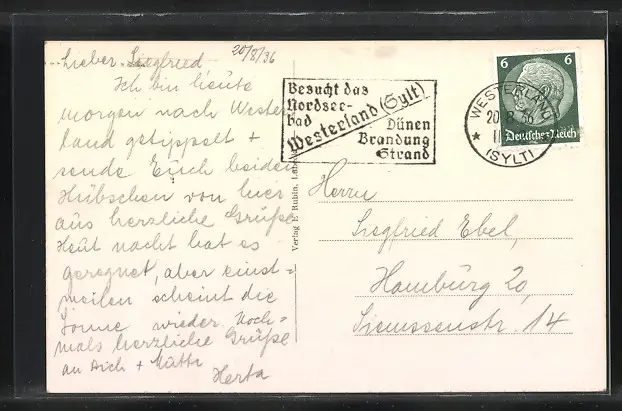 20/8/36
Lieber Siegfried
Ich bin heute
morgen nach Wester
land getippelt +
sende Euch beiden
Hübschen von hier
aus herzliche Grüße
Heut nacht hat es
geregnet, aber einst=
weilen scheint die
Sonne wieder. Noch=
mals herzliche Grüße
an Dich + Mutti
Herta
Besucht das
Nordsee-
bad
Westerland (Sylt)
Dünen
Brandung
Strand
6 6
Deutsches Reich
WESTERLAND
20.8.36
(SYLT)
Verlag E Rubin,
Herrn
Siegfried Ebel,
Hamburg 20,
Siemssenstr. 14